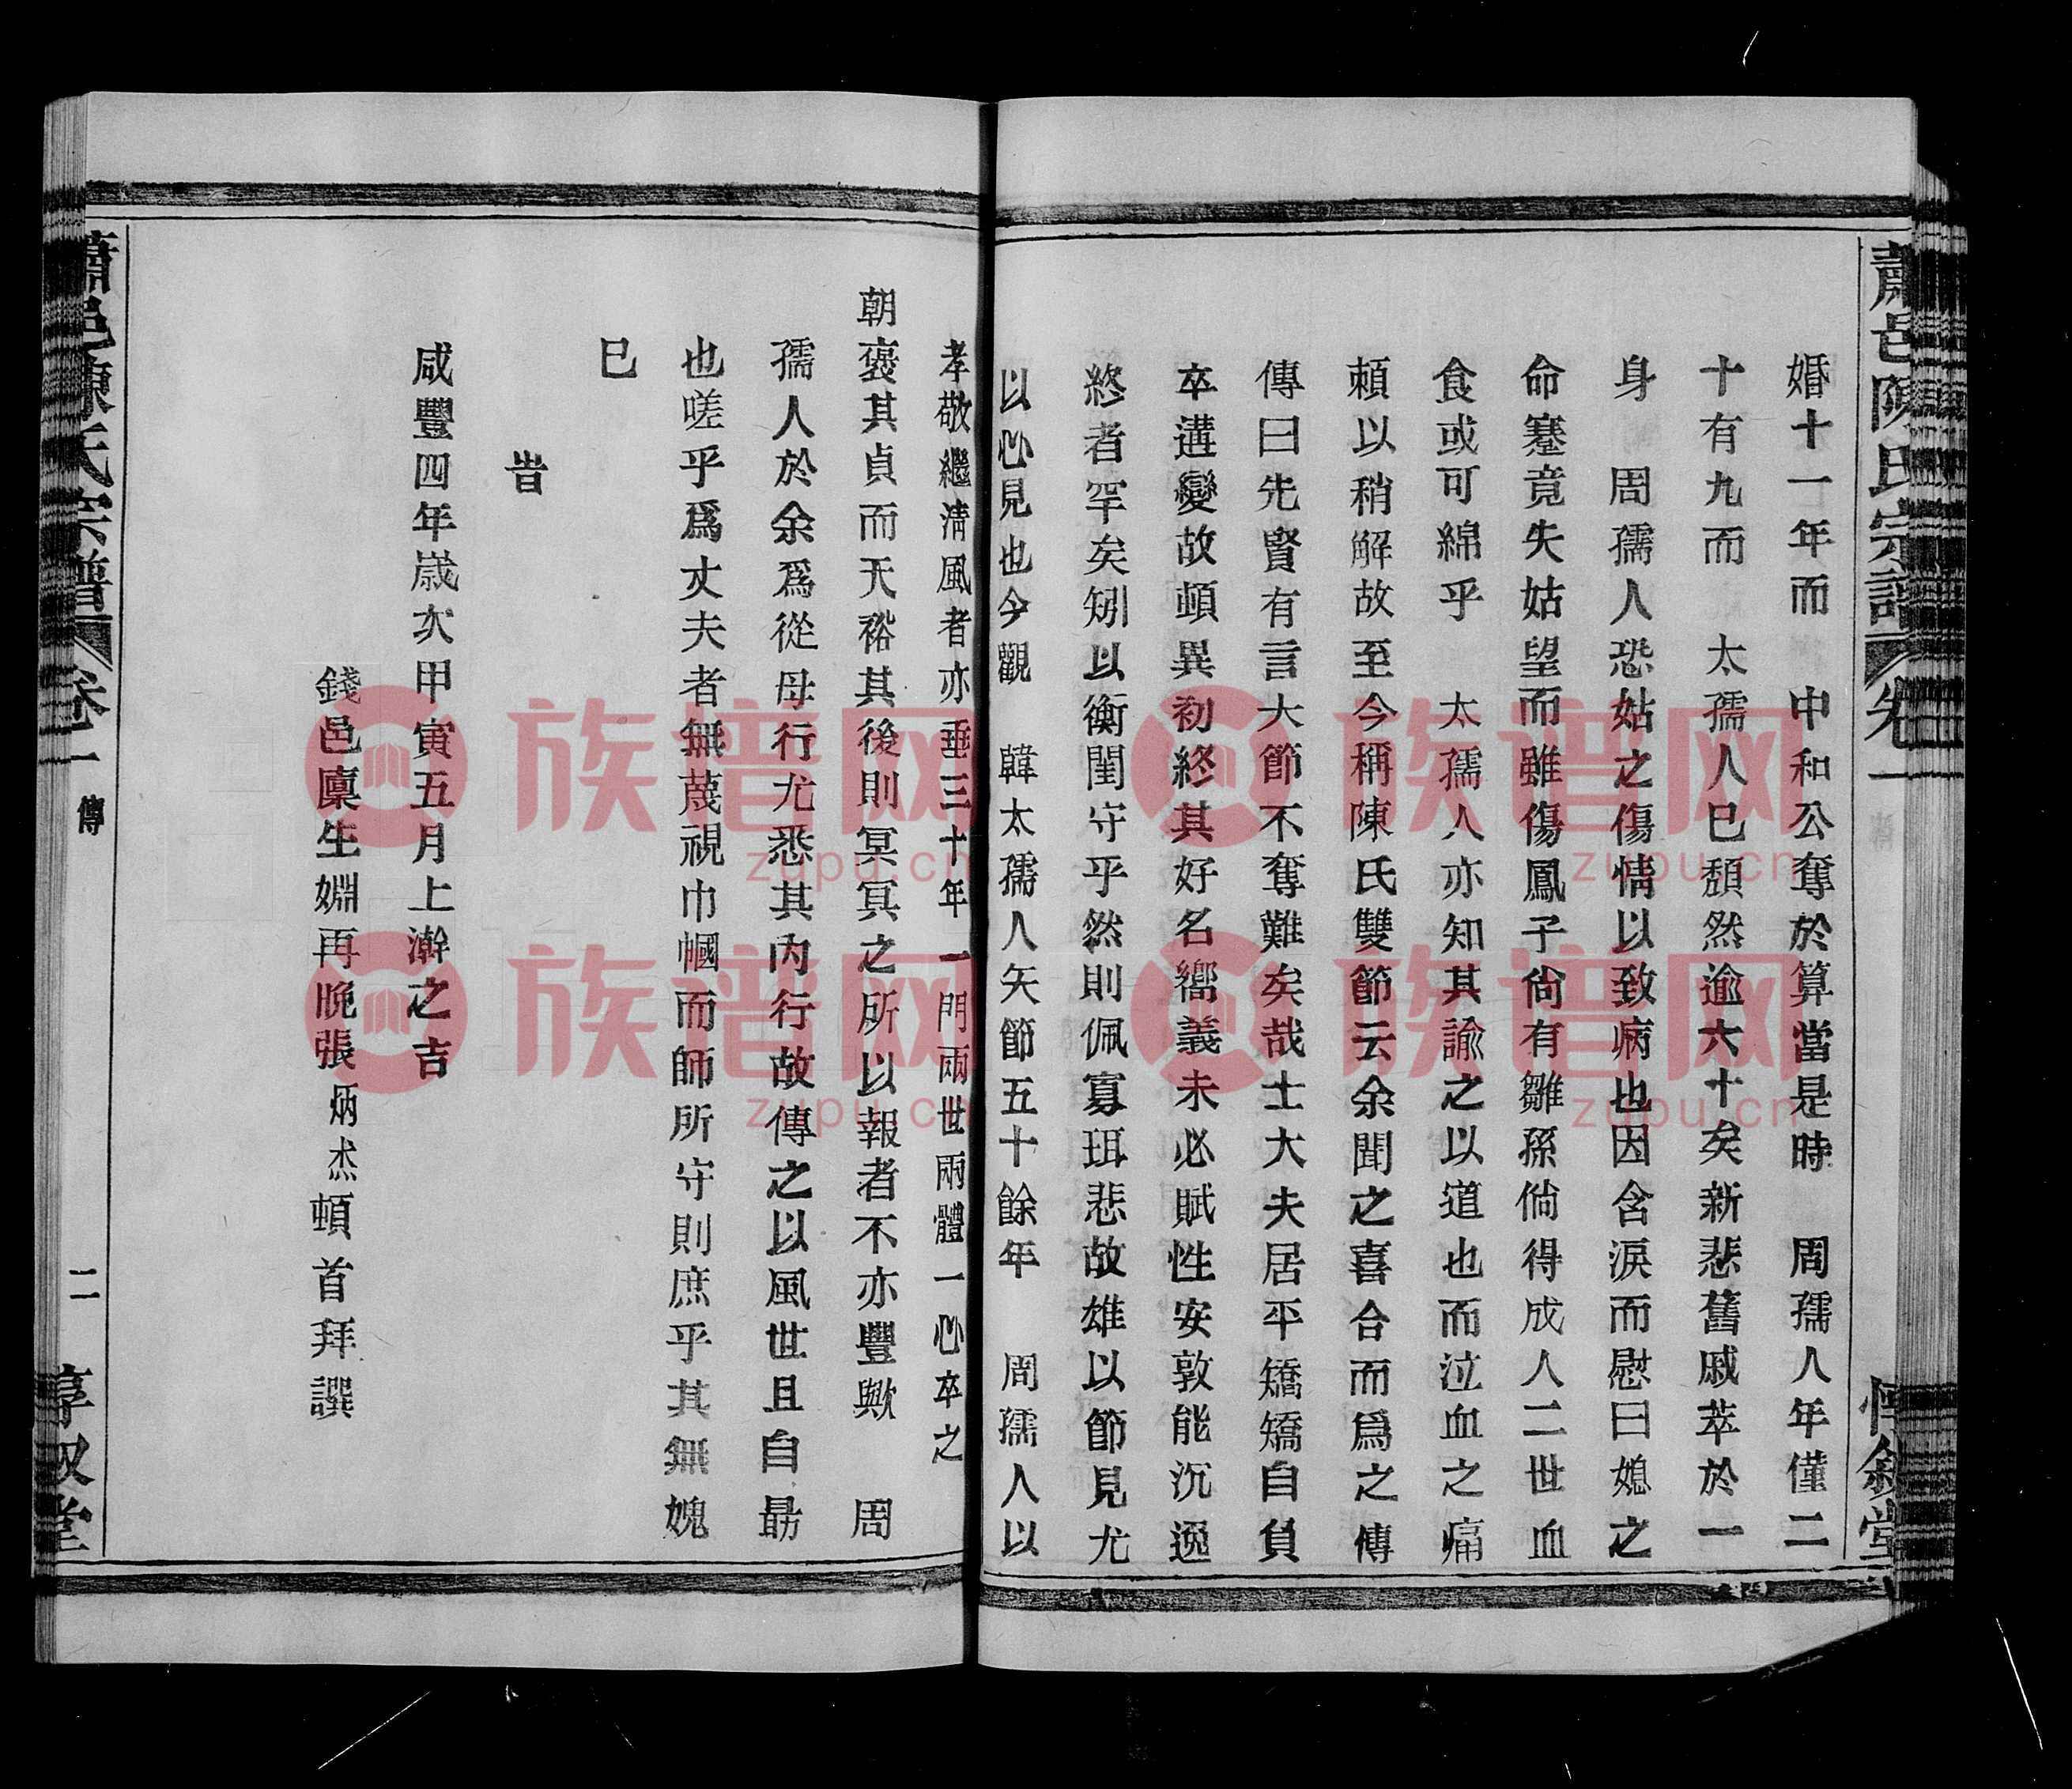 蕭邑陳氏宗譜 卷一 惇敘堂
婚十一年而 中和公奪於算當是時 周孺人年僅二
十有九而 太孺人巳頹然逾六十矣新悲舊戚萃於一
身 周孺人恐姑之傷情以致病也因含淚而慰曰媳之
命蹇竟失姑望而雖傷鳳子尙有雛孫倘得成人二世血
食或可綿乎 太孺人亦知其諭之以道也而泣血之痛
頼以稍解故至今稱陳氏雙節云余聞之喜合而爲之傳
傳曰先賢有言大節不奪難矣哉士大夫居平矯矯自負
卒遘變故頓異初終其好名嚮義未必賦性安敦能沉逸
終者罕矣矧以衡閨守乎然則佩寡珥悲故雄以節見尤
以必見也今觀 韓太孺人矢節五十餘年 周孺人以
孝敬繼淸風者亦垂三十年一門兩世兩體一心卒之
朝褒其貞而天裕其後則冥冥之所以報者不亦豐歟 周
孺人於余爲從母行尤悉其內行故傳之以風世且自勗
也嗟乎爲丈夫者無蔑視巾幗而師所守則庶乎其無媿
巳
旹
咸豐四年歲次甲寅五月上澣之吉
錢邑廩生姻再晚張炳杰頓首拜譔
蕭邑陳氏宗譜 卷一 傳 二 惇敘堂
族谱网
zupu.cn
族谱网
zupu.cn
族谱网
zupu.cn
族谱网
zupu.cn